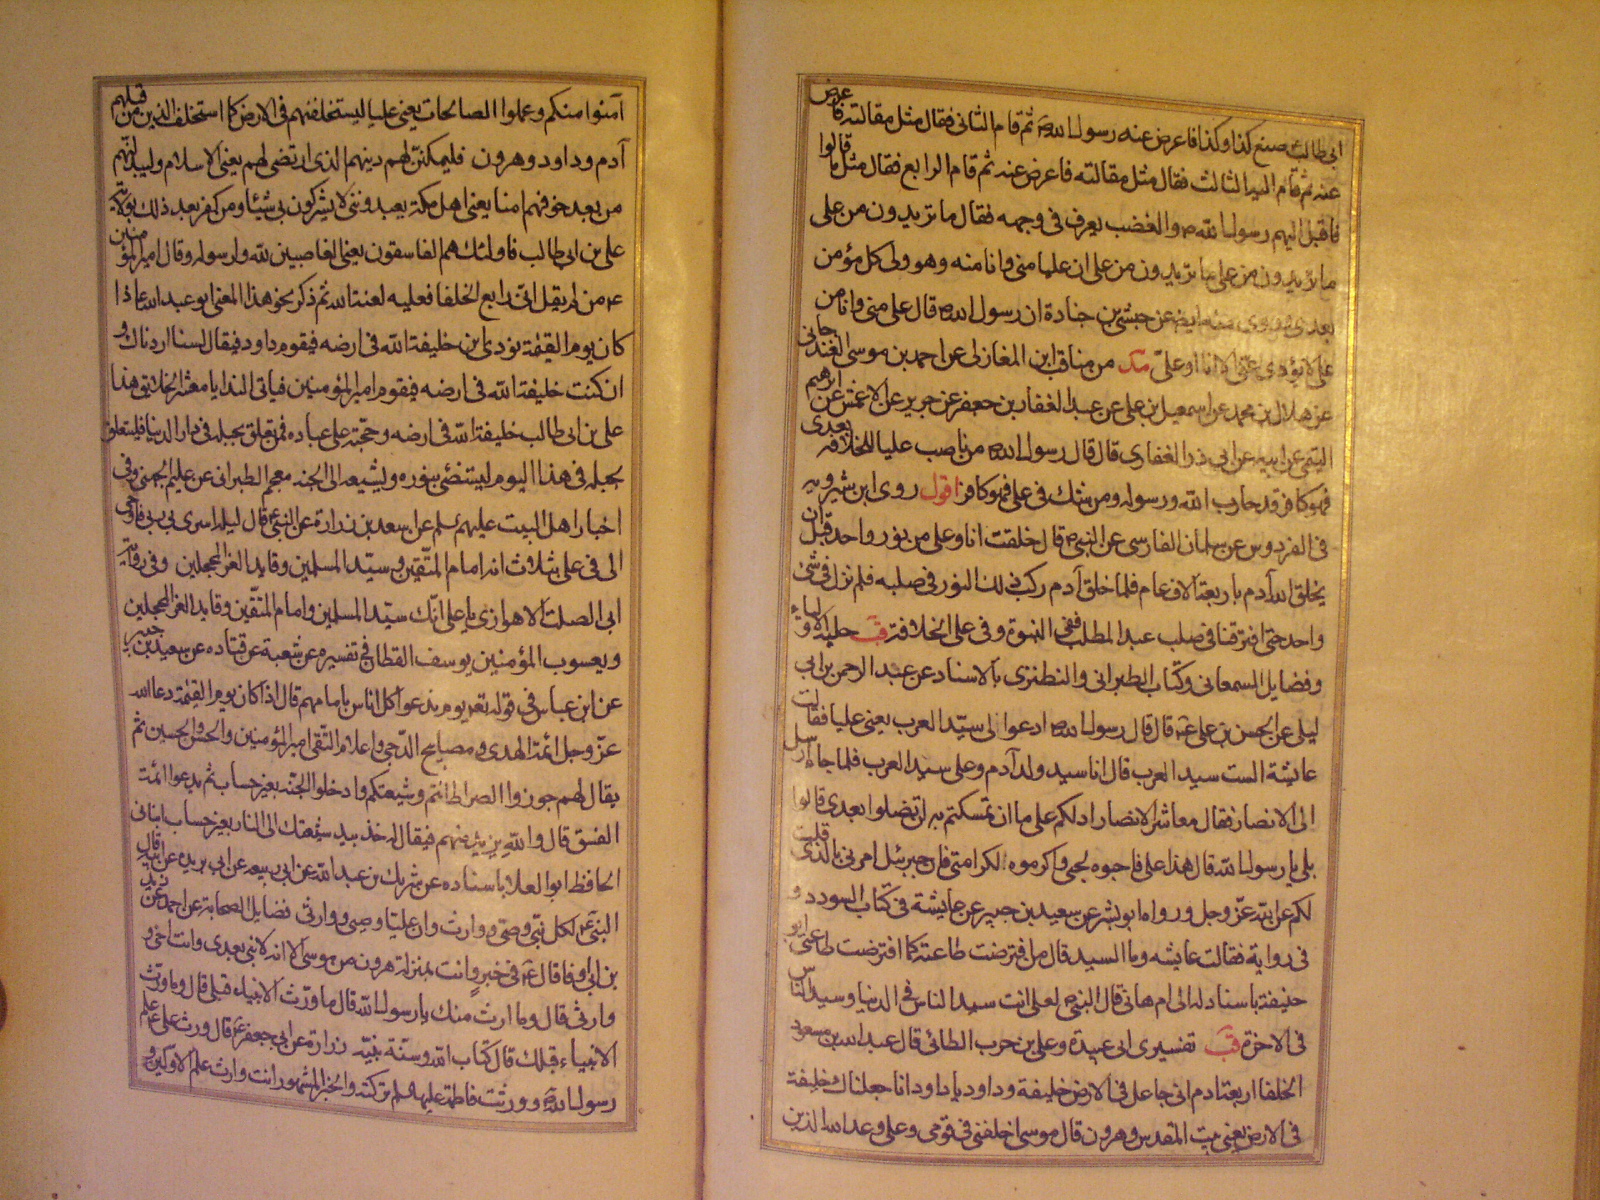 ابي طالب صنع كذا وكذا فاعرض عنه رسول الله ص ثم قام الثاني فقال مثل مقالته فاعرض
عنه ثم قام اليه الثالث فقال مثل مقالته فاعرض عنه ثم قام الرابع فقال مثل ما قالوا
فاقبل اليهم رسول الله ص والغضب يعرف في وجهه فقال ما تريدون من علي
ما تريدون من علي ما تريدون من علي ان عليا مني وانا منه وهو ولي كل مؤمن
بعدي عن حبشي بن جنادة ان رسول الله ص قال علي مني وانا من
علي لا يؤدي عني الا انا او علي مد من مناقب ابن المغازلي عن احمد بن موسى الغندجاني
عن هلال بن محمد عن اسمعيل بن علي عن عبد الغفار بن جعفر عن جرير عن الاعمش عن ابرهيم
التيمي عن ابيه عن ابي ذر الغفاري قال قال رسول الله ص من ناصب عليا للخلافة بعدي
فهو كافر وقد حارب الله ورسوله ومن شك في علي فهو كافر اقول روى ابن شيرويه
في الفردوس عن سلمان الفارسي عن النبي ص قال خلقت انا وعلي من نور واحد قبل ان
يخلق الله آدم باربعة الاف عام فلما خلق آدم ركب ذلك النور في صلبه فلم نزل في شئ
واحد حتى افترقنا في صلب عبد المطلب ففي النبوة وفي علي الخلافة قب حلية الاولياء
وفضايل السمعاني وكتاب الطبراني والنطنزي بالاسناد عن عبد الرحمن بن ابي
ليلى عن الحسن بن علي ع قال قال رسول الله ص ادعوا لي سيد العرب يعني عليا فقالت
عايشة الست سيد العرب قال انا سيد ولد آدم وعلي سيد العرب فلما جاء ارسل
الى الانصار فقال معاشر الانصار ادلكم على ما ان تمسكتم به لن تضلوا بعدي قالوا
بلى يا رسول الله قال هذا علي فاحبوه لحبي واكرموه لكرامتي فان جبرئيل امرني بالذي قلت
لكم عن الله عز وجل ورواه ابو بشر عن سعيد بن جبير عن عايشة في كتاب السودد و
في رواية فقالت عايشه وما السيد قال من افترضت طاعته كما افترضت طاعتي ابو
حنيفة باسناد له الى ام هاني قال النبي ص لعلي انت سيد الناس في الدنيا وسيد الناس
في الاخرة قب تفسيري ابي عبيدة وعلي بن حرب الطائي قال عبد الله بن مسعود
الخلفا اربعة ادم اني جاعل في الارض خليفة وداود يا داود انا جعلناك خليفة
في الارض يعني بيت المقدس وهرون قال موسى اخلفني في قومي وعلي وعد الله الذين
آمنوا منكم وعملوا الصالحات يعني عليا ليستخلفنهم في الارض كما استخلف الذين من قبلهم
آدم وداود وهرون فليمكنن لهم دينهم الذي ارتضى لهم يعني الاسلام وليبدلنهم
من بعد خوفهم امنا يعني اهل مكة يعبدونني لا يشركون بي شيئا ومن كفر بعد ذلك بولاية
علي بن ابي طالب فاولئك هم الفاسقون يعني العاصين لله ولرسوله وقال امير المؤمنين
ع من لم يقل اني رابع الخلفا فعليه لعنة الله ثم ذكر نحو هذا المعنى ابو عبد الله ع اذا
كان يوم القيمة نودي اين خليفة الله في ارضه فيقوم داود فيقال لسنا اردناك و
ان كنت خليفة الله في ارضه فيقوم امير المؤمنين فياتي الندا يا معشر الخلايق هذا
علي بن ابي طالب خليفة الله في ارضه وحجته على عباده فمن تعلق بحبله في دار الدنيا فليتعلق
بحبله في هذا اليوم ليستضئ بنوره ويشيعه الى الجنه معجم الطبراني عن عليم الجهني وفي
اخبار اهل البيت عليهم السلم عن اسعد بن زرارة عن النبي ص قال ليلة اسري بي ربي فاوحى
الي في علي بثلاث انه امام المتقين وسيد المسلمين وقايد الغر المحجلين وفي رواية
ابي الصلت الاهوازي يا علي انك سيد المسلمين وامام المتقين وقايد الغر المحجلين
ويعسوب المؤمنين يوسف القطان في تفسيره عن شعبة عن قتاده عن سعيد بن جبير
عن ابن عباس في قوله تعم يوم ندعوا كل اناس بامامهم قال اذا كان يوم القيمة دعا الله
عز وجل ائمة الهدى ومصابيح الدجى واعلام التقى امير المؤمنين والحسن والحسين ثم
يقال لهم جوزوا الصراط انتم وشيعتكم وادخلوا الجنه بغير حساب ثم يدعوا ائمة
الفسق قال والله يزيد منهم فيقال له خذ بيد شيعتك الى النار بغير حساب انباني
الحافظ ابو العلا باسناده عن شريك بن عبد الله عن ابي ربيعه عن ابي بريده عن ابيه قال
النبي ص لكل نبي وصي ووارث وان عليا وصيي ووارثي فضايل الصحابة عن احمد عن زيد
بن ابي اوفا قال ع في خبر وانت بمنزلة هرون من موسى الا انه لا نبي بعدي وانت اخي و
وارثي قال وما ارث منك يا رسول الله قال ما ورث الانبياء قبلي قال وما ورث
الانبياء قبلك قال كتاب الله وسنة نبيه زرارة عن ابي جعفر ع قال ورث علي ع علم
رسول الله ص وورثت فاطمة عليها السلم تركته والخبر المشهور انت وارث علم الاولين و